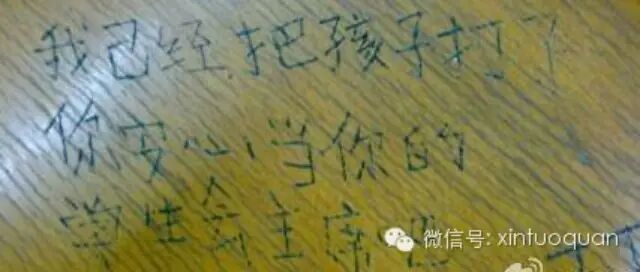 我已经把孩子打了
你安心当你的
学生会主席吧
微信号: xintuoquan